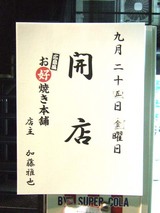 九月二十五日(金)曜日
開店
お好焼き本舗
店主 加藤雅也
SUPER-COLA